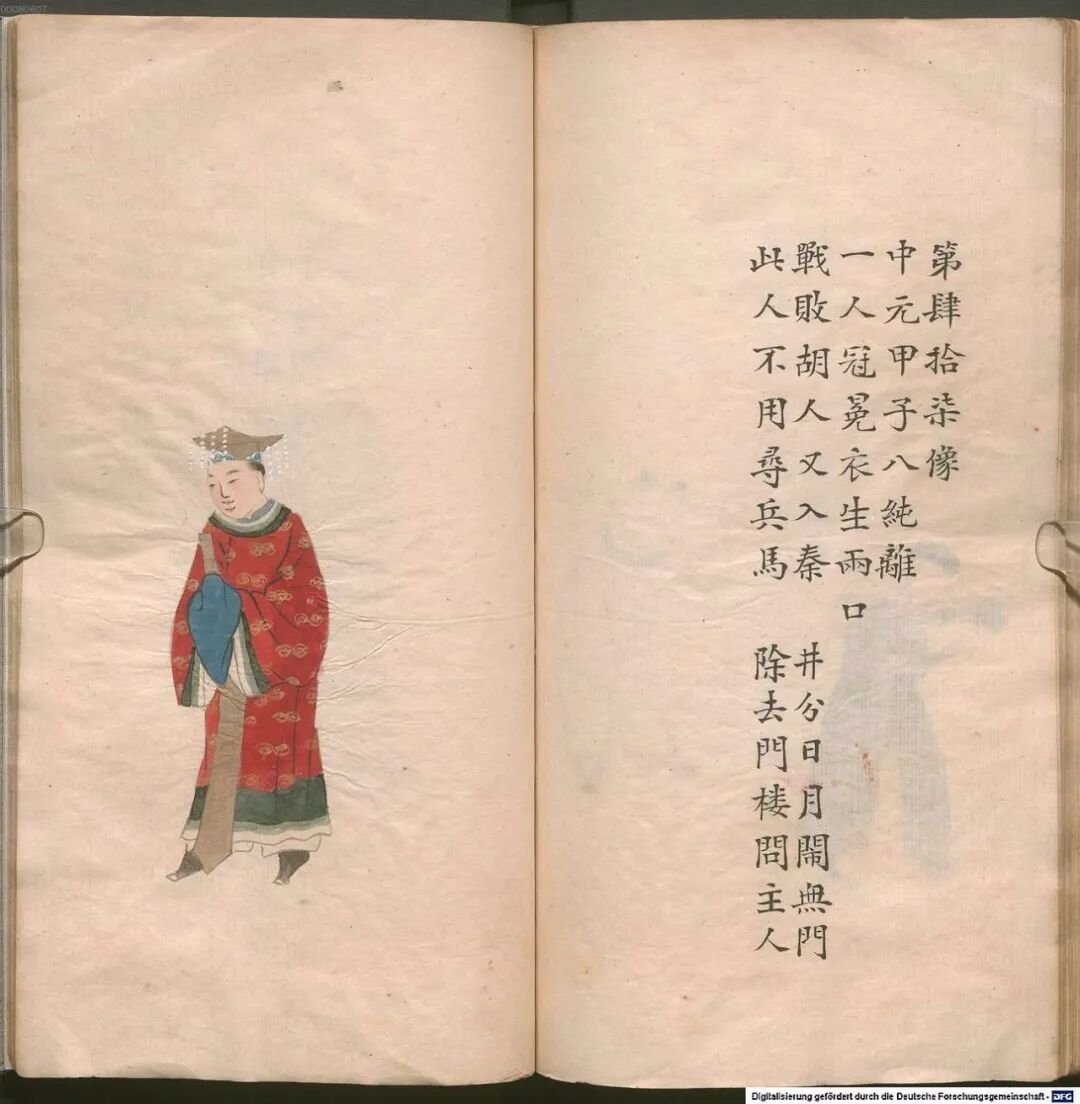 00080607
第肆拾柒像
中元甲子八純離
一人冠冕衣生兩口
戰敗胡人又入秦　井分日月閙無門
此人不用尋兵馬　除去門楼問主人
Digitalisierung gefördert durch die Deutsche Forschungsgemeinschaft - DFG